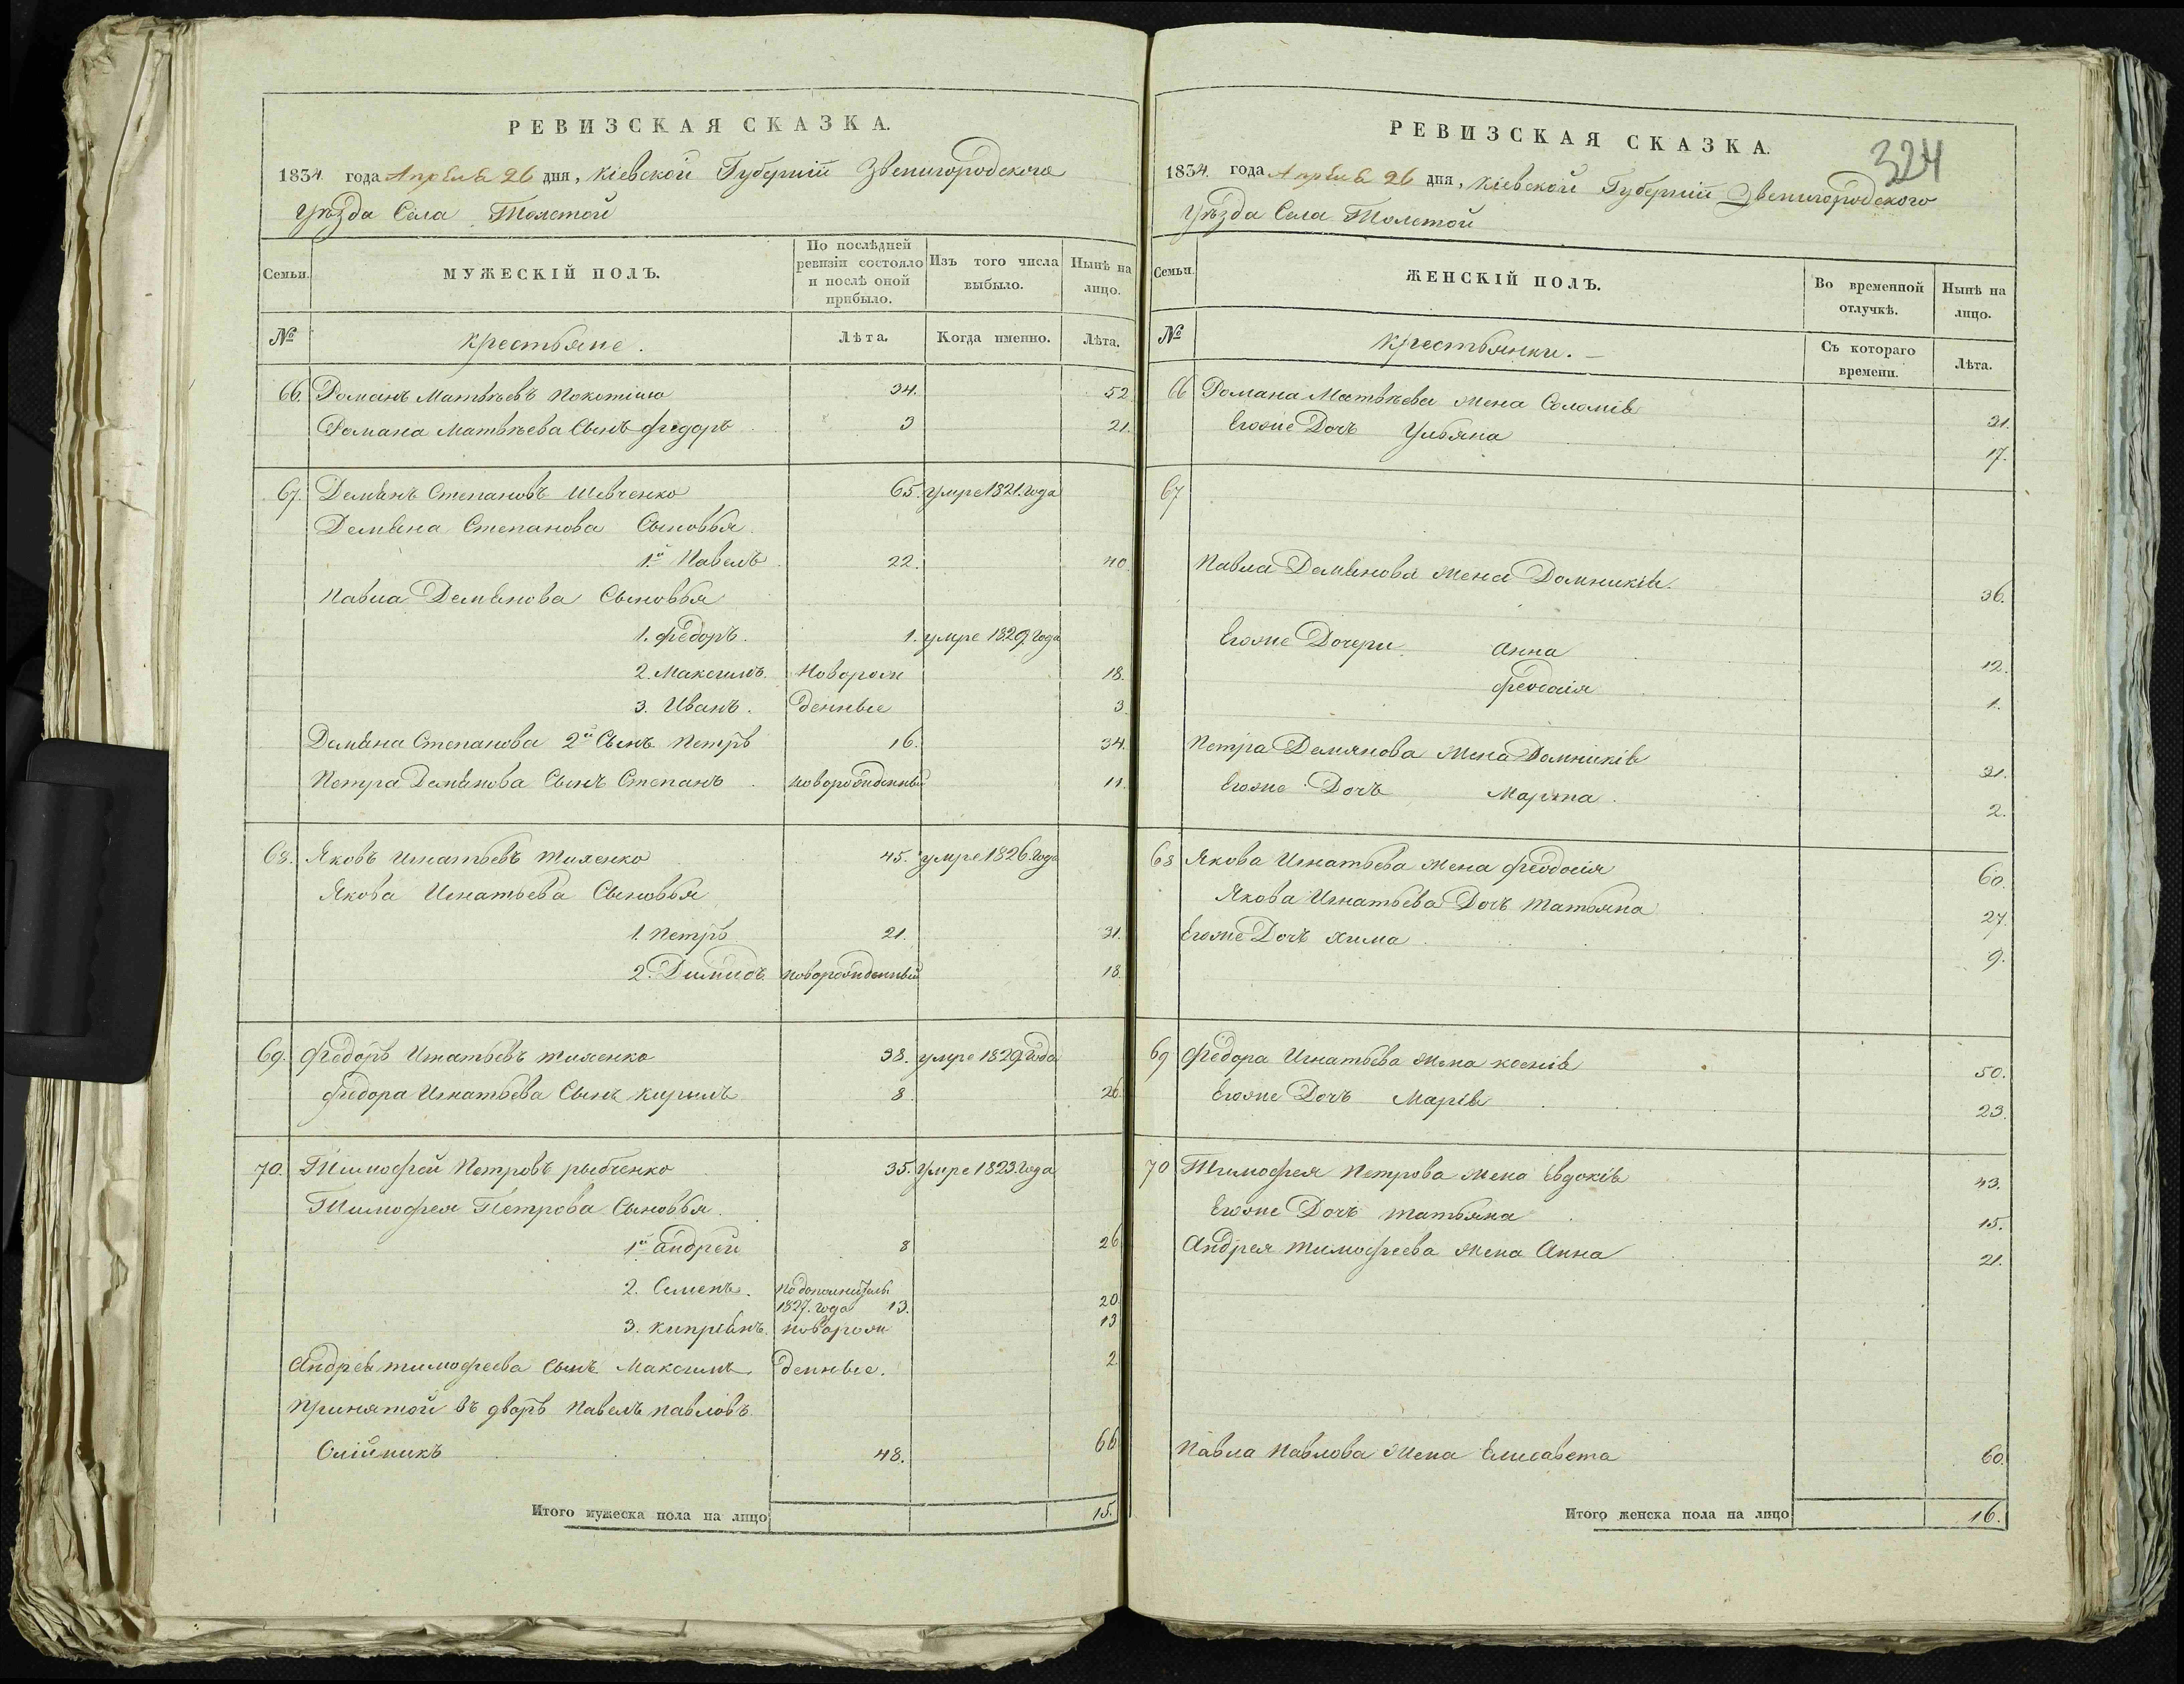 РЕВИЗСКАЯ СКАЗКА.
1834 года Апреля 26 дня, Кіевской Губерніи Звенигородского
уѣзда Села Толстой
Семьи.
МУЖЕСКІЙ ПОЛЪ.
По послѣдней
ревизіи состояло
и послѣ оной
прибыло.
Изъ того числа
выбыло.
Нынѣ на
лицо.
№
Крестьяне.
Лѣта.
Когда именно.
Лѣта.
66. Романъ Матвѣевъ Покотило 34. 52
Романа Матвѣева Сынъ Федоръ 3 21.
67. Демянъ Степановъ Шевченко 65. умре 1821. года
Демяна Степанова Сыновья
1й Павелъ 22. 40
Павла Демянова Сыновья
1. Федоръ. 1. умре 1829 года
2. Максимъ.Новорож 18.
3. Иванъ. денные 3
Демяна Степанова 2й Сынъ Петръ 16. 34.
Петра Демянова Сынъ Степанъ новорожденный 11.
68. Яковъ Игнатьевъ 45. умре 1826. года
Якова Игнатьева Сыновья
1. Петръ 21. 31.
2. Димидъ новорожденный 18.
69. Федоръ Игнатьевъ 38. умре 1829 года
Федора Игнатьева Сынъ Кирилъ 8. 26.
70. Тимофей Петровъ рыбченко 35. умре 1823. года
Тимофея Петрова Сыновья.
1й андрей 8 26
2. Семенъ. по дополнитель
1827. года 13. 20
3. Кипріянъ. новорож 13
Андрея тимофеева сынъ Максимъ денные. 2
принятой въ дворъ Павелъ павловъ
Олійникъ 48. 66
Итого мужеска пола на лицо 15.
324
РЕВИЗСКАЯ СКАЗКА.
1834. года Апреля 26 дня, Кіевской Губерніи Звенигородского
уѣзда Села Толстой
Семьи.
ЖЕНСКІЙ ПОЛЪ.
Во временной
отлучкѣ.
Нынѣ на
лицо.
№
Крестьянки.
Съ котораго
времени.
Лѣта.
66 Романа Матвѣева жена Соломія 31.
Егоже Дочъ Ульяна 17.
67
Павла Демянова жена Домникія 36.
Егоже Дочери Анна 12.
Феодосія 1.
Петра Демянова жена Домникія 31.
Егоже Дочъ Марта. 2.
68 Якова Игнатьева жена Феодосія 60.
Якова Игнатьева Дочъ татьяна 27.
Егоже Дочъ Хима 9.
69 Федора Игнатьева жена ксенія 50.
Егоже Дочъ Марія 23.
70 Тимофея Петрова жена Евдокія 43.
Егоже Дочъ татьяна 15.
Андрея тимофеева жена Анна 21.
Павла Павлова жена Елисавета 60.
Итого женска пола на лицо 16.